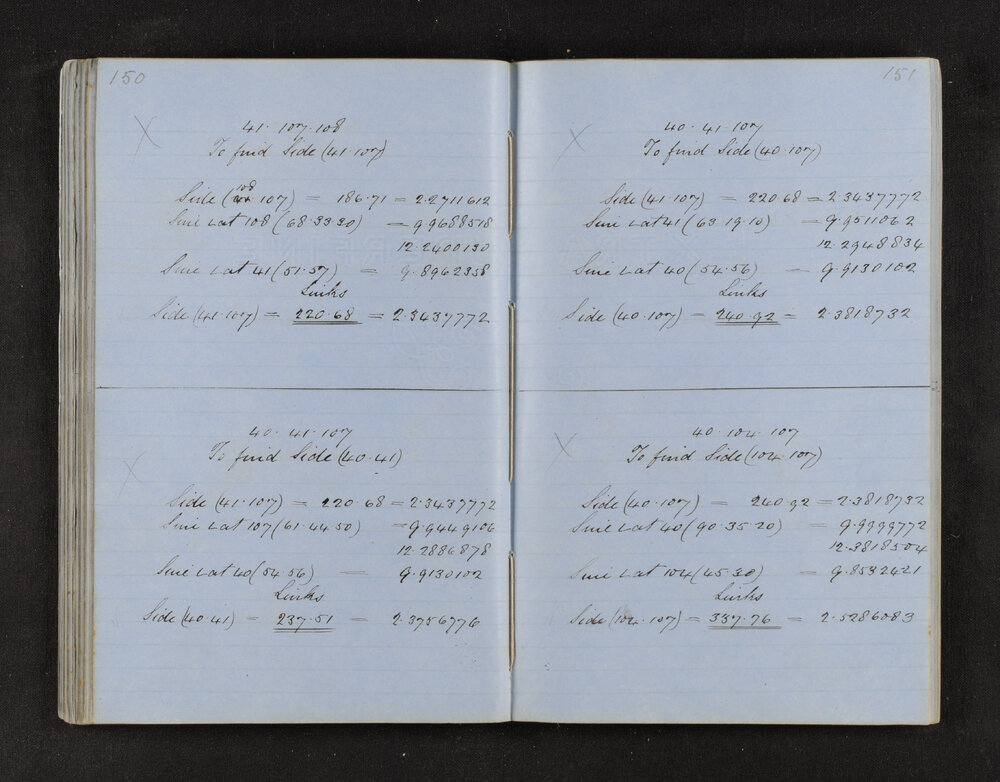 150
41. 107. 108
To find Side (41.107)
Side (108 107) = 186.71 = 2.2711612
Sine Lat 108 (68.33.30) = 9.9688518
12.2400130
Sine Lat 41 (51.57) = 9.8962358
Links
Side (41.107) = 220.68 = 2.3437772
40. 41. 107
To find Side (40.41)
Side (41.107) = 220.68 = 2.3437772
Sine Lat 107 (61.44.50) = 9.9449106
12.2886878
Sine Lat 40 (54.56) = 9.9130102
Links
Side (40 41) = 237.51 = 2.3756776
151
40. 41. 107
To find Side (40.107)
Side (41 107) = 220 68 = 2.3437772
Sine Lat 41 (63.19.10) = 9.9511062
12.2948834
Sine Lat 40 (54.56) = 9.9130102
Links
Side (40.107) = 240.92 = 2.3818732
40. 104. 107
To find Side (104.107)
Side (40.107) = 240.92 = 2.3818732
Sine Lat 40 (90.35.20) = 9.9999772
12.3818504
Sine Lat 104 (45.30) = 9.8532421
Links
Side (104.107) = 337.76 = 2.5286083